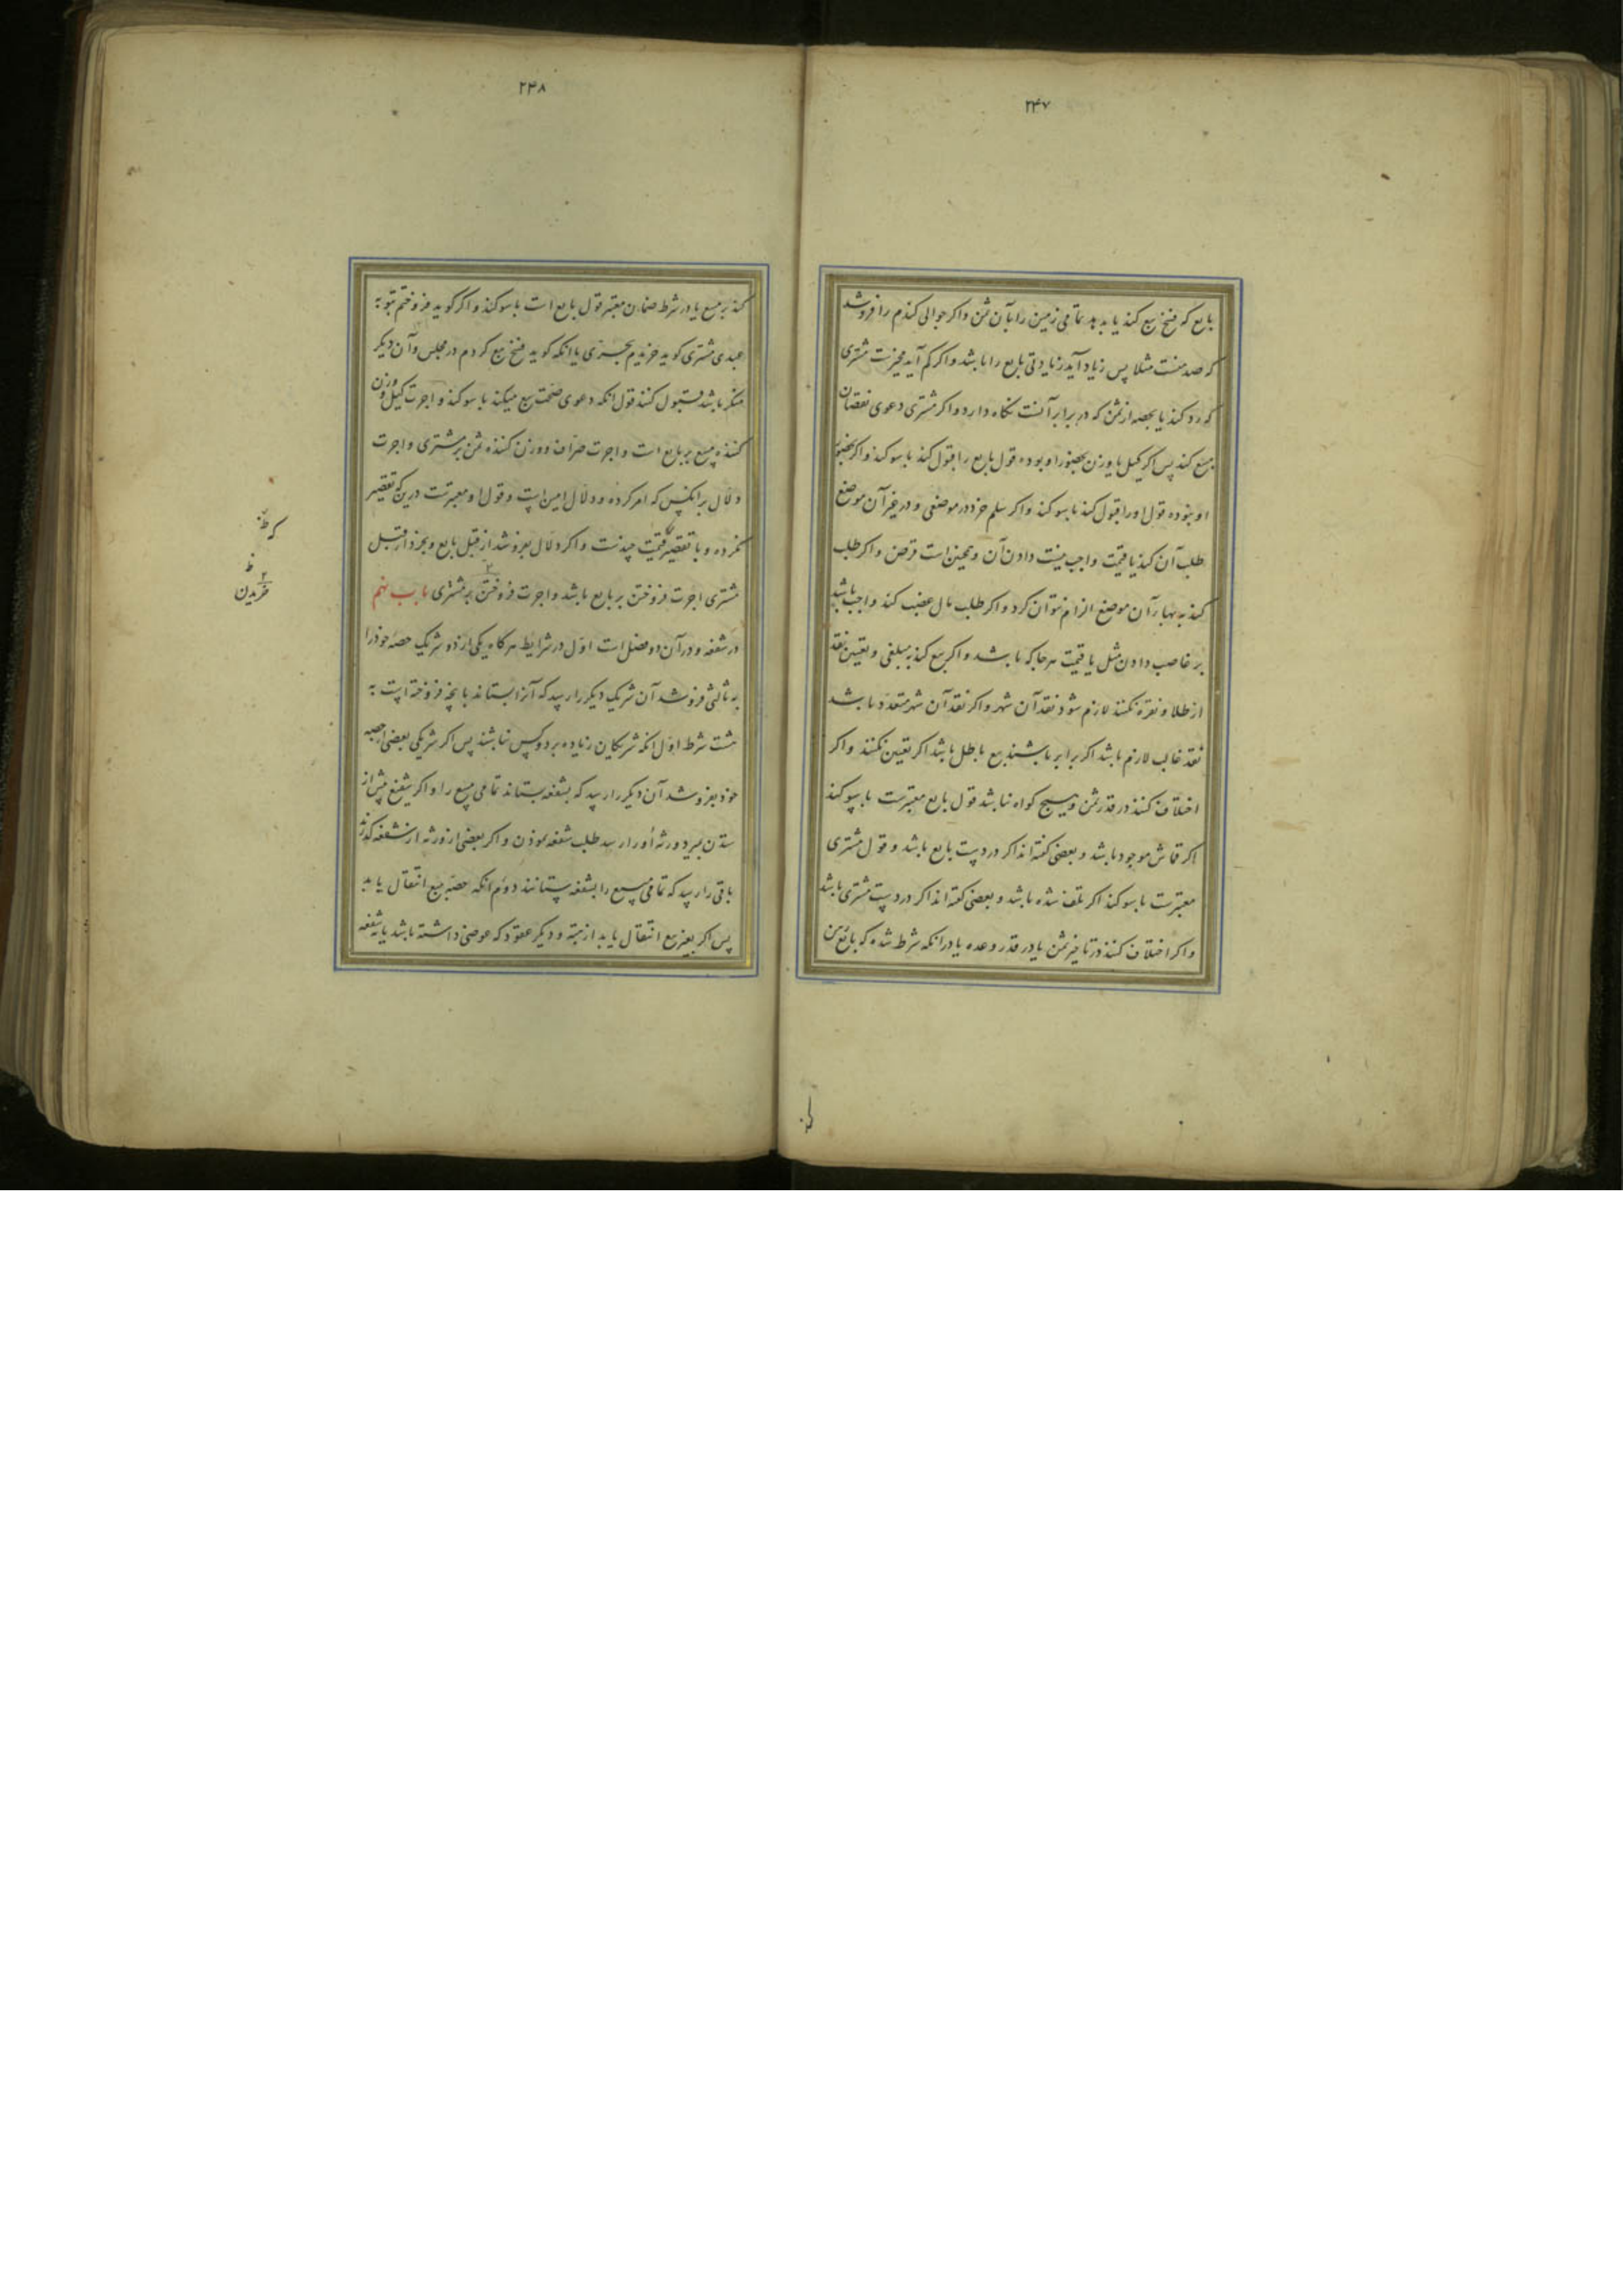 ۲۴۷
بایع که فسخ بیع کند یا بدهد تمامی زمین را بآن ثمن و اکر جوالی کندم را فروشد
که صد منست مثلا پس زیاد آید زیادتی بایع را باشد و اکر کم آید مخیرست مشتری
که رد کند یا بحصه از ثمن که در برابر آنست نکاه دارد و اکر مشتری دعوی نقصان
مبیع کند پس اکر کیل یا وزن بحضور او بوده قول بایع را قبول کنند با سوکند و اکر بحضور
او نبوده قول او را قبول کنند با سوکند و اکر سلم خرد در موضعی و در غیر آن موضع
طلب آن کند یا قیمت واجب نیست دادن آن و همچنین است قرض و اکر طلب
کند به بهاء آن موضع الزام نتوان کرد و اکر طلب مال غصب کند واجب باشد
بر غاصب دادن مثل یا قیمت هر جا که باشد و اکر بیع کند به مبلغی و تعیین نقد
از طلا و نقره نکنند لازم شود نقد آن شهر و اکر نقد آن شهر متعدد باشد
نقد غالب لازم باشد اکر برابر باشند بیع باطل باشد اکر تعیین نکنند و اکر
اختلاف کنند در قدر ثمن و هیچ کواه نباشد قول بایع معتبرست با سوکند
اکر قماش موجود باشد و بعضی کفته‌اند اکر در دست بایع باشد و قول مشتری
معتبرست با سوکند اکر تلف شده باشد و بعضی کفته‌اند اکر در دست مشتری باشد
و اکر اختلاف کنند در تاخیر ثمن یا در قدر وعده یا در آنکه شرط شده که بایع رهن
۲۴۸
کند بر مبیع یا در شرط ضمان معتبر قول بایع است با سوکند و اکر کوید فروختم بتو به
عبدی مشتری کوید خریدم بحری یا آنکه کوید فسخ بیع کردم در مجلس و آن دیکر
منکر باشد قبول کنند قول آنکه دعوی صحت بیع میکند با سوکند و اجرت کیل و وزن
کننده مبیع بر بایع است و اجرت صراف و وزن کننده ثمن بر مشتری و اجرت
دلال بر آنکس که امر کرده و دلال امین است و قول او معتبرست در این که تقصیر
نکرده و با تقصیر که قیمت چندست و اکر دلال بفروشد از قبل بایع و بخرد از قبل
مشتری اجرت فروختن بر بایع باشد و اجرت فروختن بر مشتری باب نهم
در شفعه و در آن دو فصل است اول در شرایط هر کاه یکی از دو شریک حصه خود را
به ثالثی فروشد آن شریک دیکر را رسد که آنرا بستاند بآنچه فروخته است به
هشت شرط اول آنکه شریکان زیاده بر دو کس نباشند پس اکر شریکی بعضی از حصه
خود بفروشد آن دیکر را رسد که بشفعه بستاند تمامی مبیع را و اکر شفیع پیش از
ستدن بمیرد ورثه او را رسد طلب شفعه نمودن و اکر بعضی از ورثه از شفعه کذرند
باقی را رسد که تمامی مبیع را بشفعه بستانند دوم آنکه حصه به بیع انتقال یابد
پس اکر بغیر بیع انتقال یابد از هبه و دیکر عقود که عوضی داشته باشد یا نه شفعه
ظ
خریدن